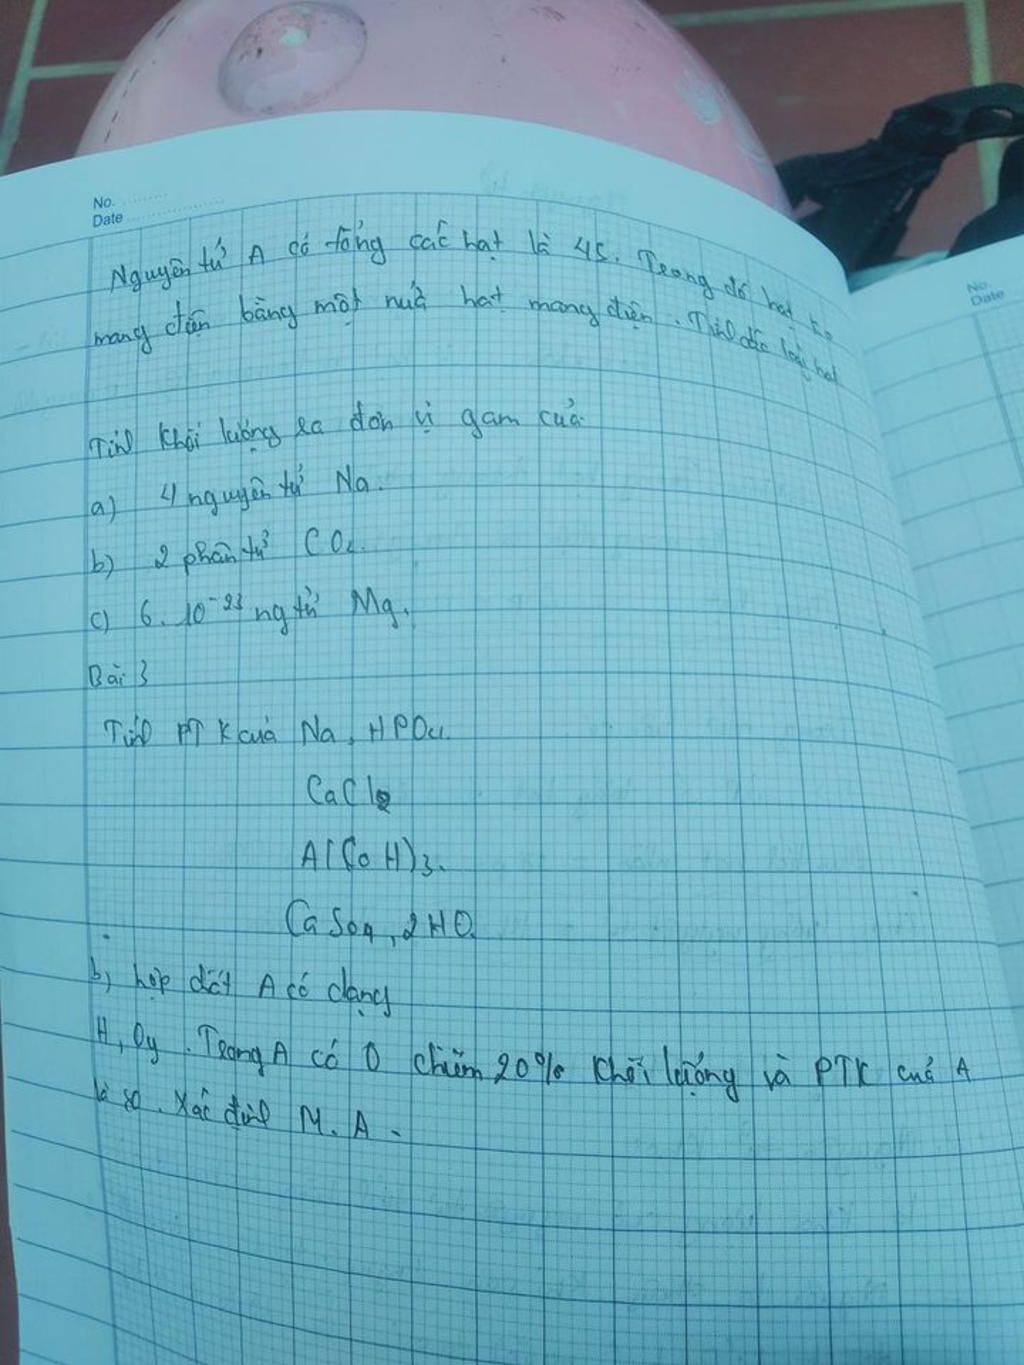 No.
Date
Nguyên tử A có tổng các hạt là 45. Trong đó hạt ko
mang điện bằng một nửa hạt mang điện. Tính các loại hạt
Tính khối lượng ra đơn vị gam của
a) 4 nguyên tử Na.
b) 2 phân tử CO2.
c) 6.10⁻²³ ng tử Mg.
Bài 3
Tính PTK của Na, HPO4.
CaCl2
Al(OH)3.
CaSO4, 2HO.
b, hợp chất A có dạng
Oy. Trong A có O chiếm 20% khối lượng và PTK của A
là 80. Xác định M. A.
No.
Date